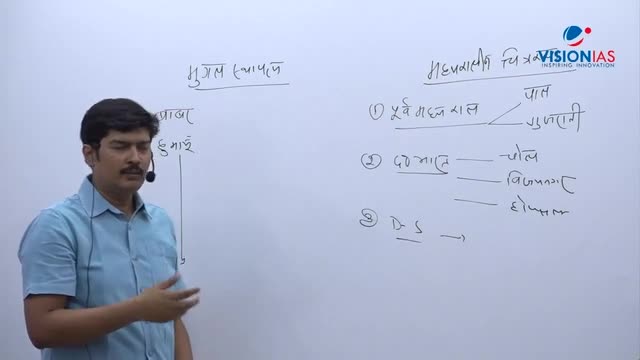 VISIONIAS
INSPIRING INNOVATION
मुगल स्थापत्य
बाबर
हुमायूँ
मध्यकालीन चित्रकला
① पूर्व मध्यकाल
पाल
गुजराती
② द० भारत
चोल
विजयनगर
होयसल
③ D-S →